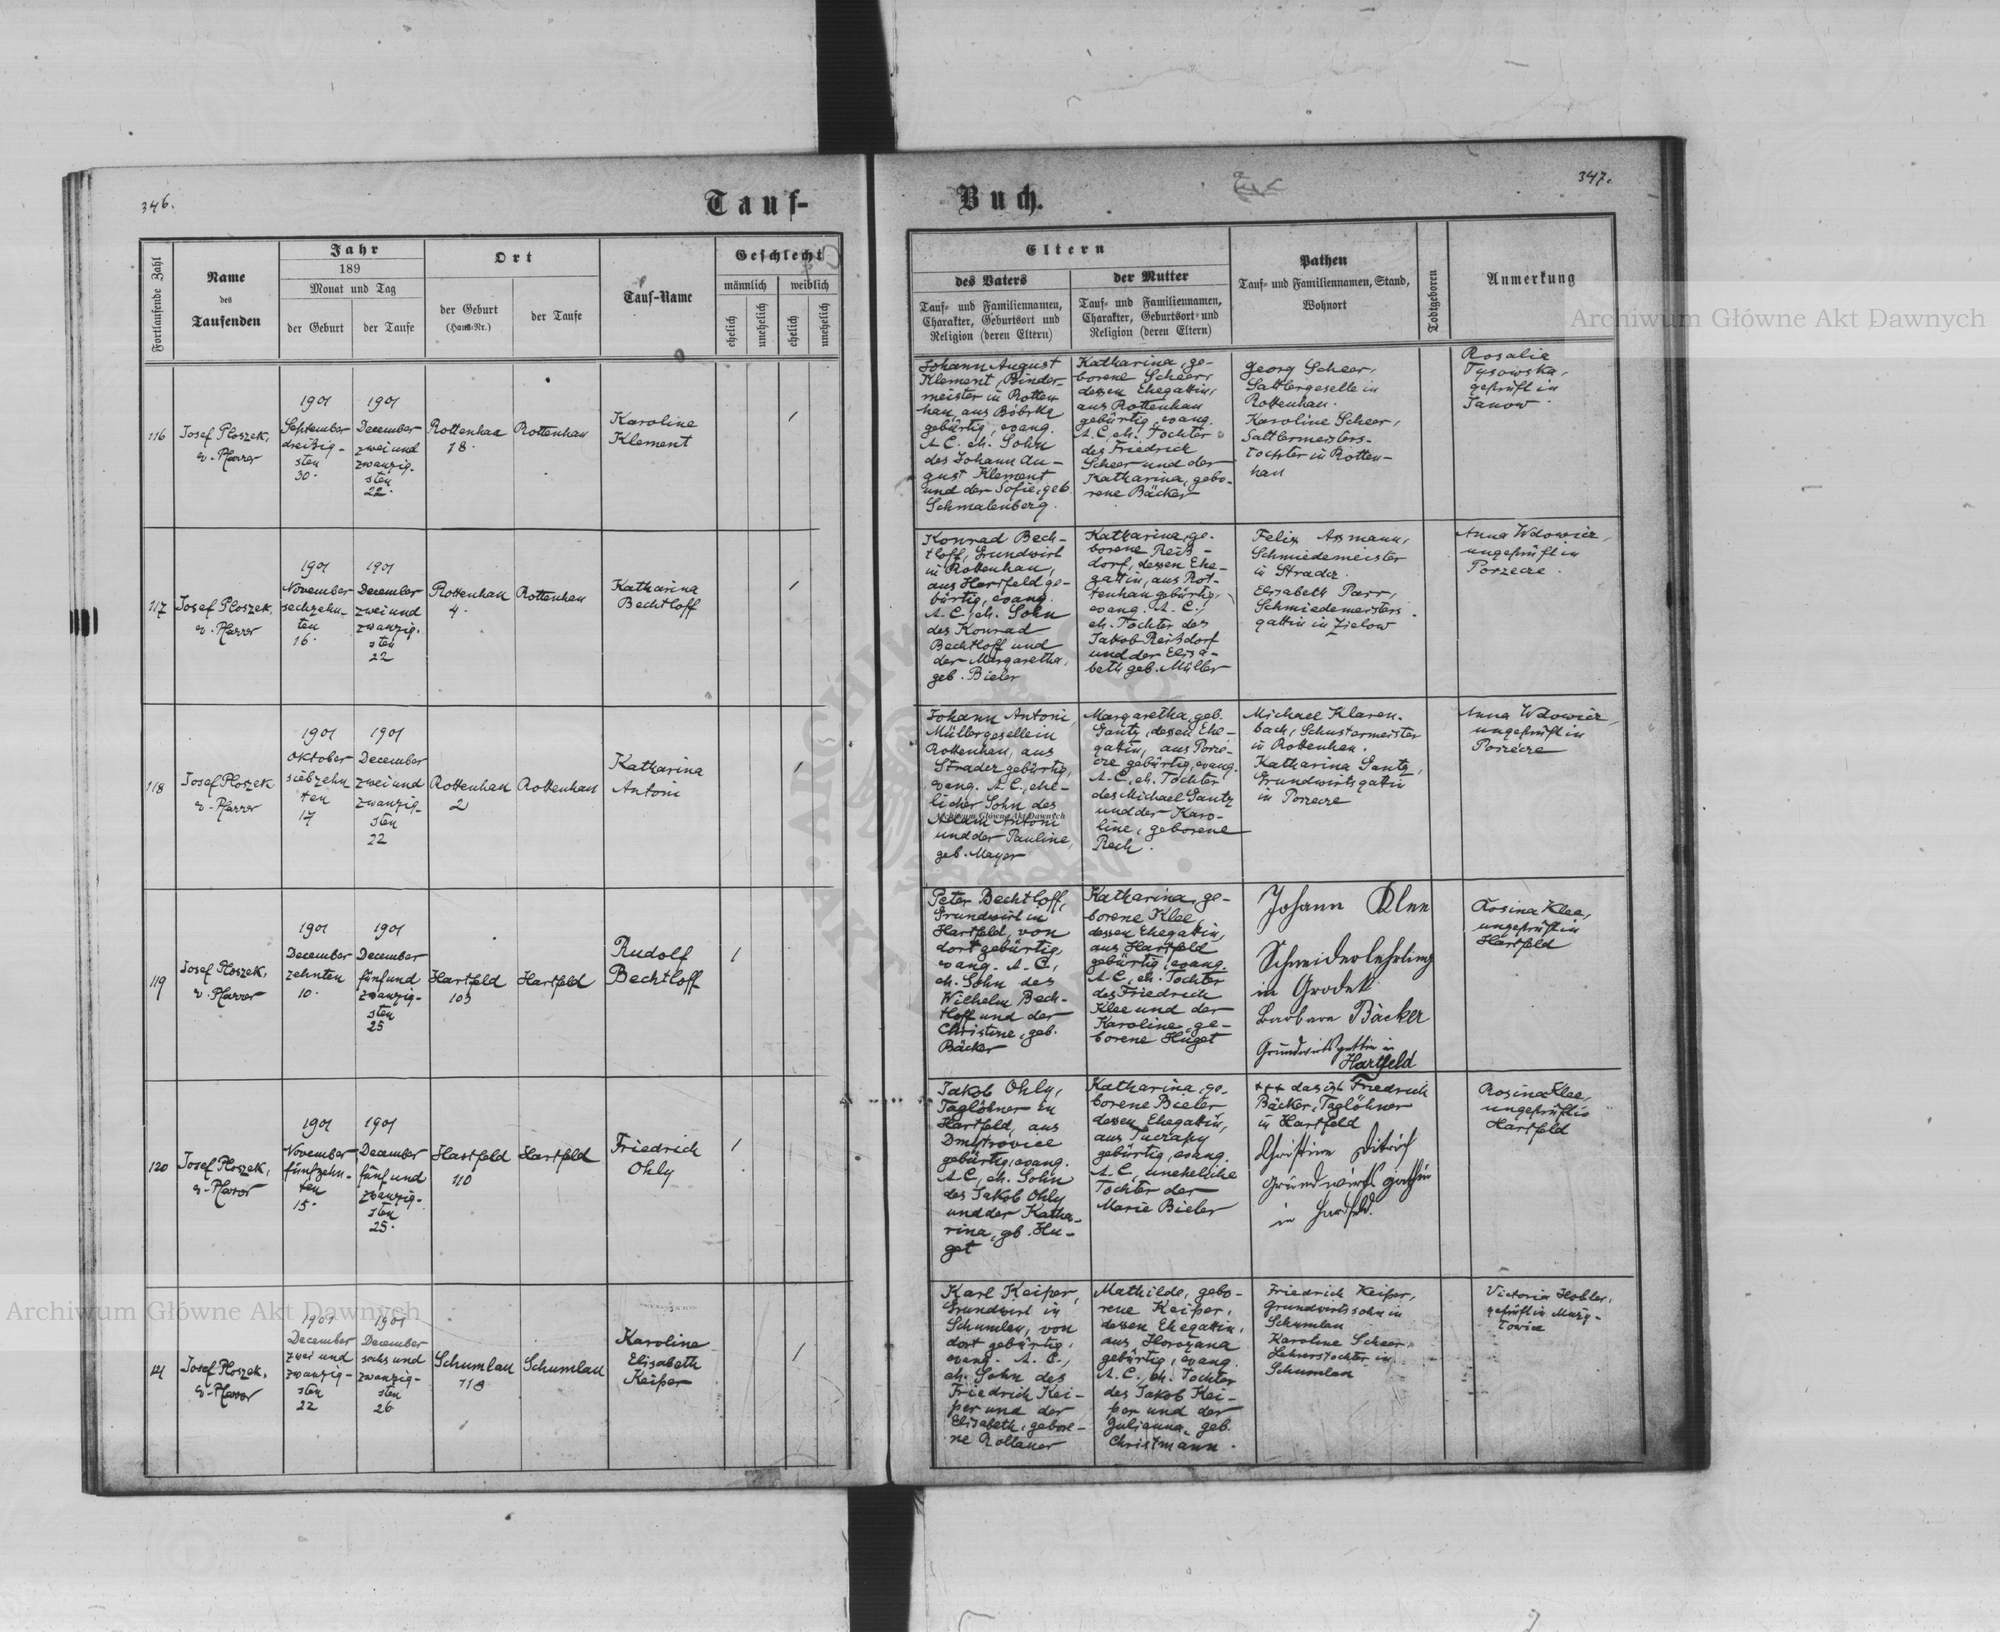 346.
Tauf-
Buch.
347.
Fortlaufende Zahl
Name
des
Taufenden
Jahr
189
Monat und Tag
der Geburt
der Taufe
Ort
der Geburt
(Haus-Nr.)
der Taufe
Tauf-Name
Geschlecht
männlich
weiblich
ehelich
unehelich
ehelich
unehelich
Eltern
des Vaters
Tauf- und Familiennamen,
Charakter, Geburtsort und
Religion (deren Eltern)
der Mutter
Tauf- und Familiennamen,
Charakter, Geburtsort und
Religion (deren Eltern)
Pathen
Tauf- und Familiennamen, Stand,
Wohnort
Todtgeboren
Anmerkung
Archiwum Główne Akt Dawnych
116
Josef Ploszek,
ev. Pfarrer
1901
September
dreißig-
sten
30.
1901
December
zwei und
zwanzig-
sten
22.
Rottenhan
78.
Rottenhan
Karoline
Klement
1
Johann August
Klement, Binder-
meister in Rotten-
han, aus Bóbrka
gebürtig, evang.
A. C. eh. Sohn
des Johann Au-
gust Klement
und der Sofie, geb.
Schmalenberg.
Katharina, ge-
borene Scheer,
dessen Ehegattin,
aus Rottenhan
gebürtig, evang.
A. C., eh. Tochter
des Friedrich
Scheer und der
Katharina, gebo-
rene Bäcker
Georg Scheer,
Sattlergeselle in
Rottenhan.
Karoline Scheer,
Sattlermeisters-
tochter in Rotten-
han
Rosalia
Tysowska,
geprüft in
Janow.
117
Josef Ploszek,
ev. Pfarrer
1901
November
sechzehn-
ten
16.
1901
December
zwei und
zwanzig-
sten
22
Rottenhan
4.
Rottenhan
Katharina
Bechtloff
1
Konrad Bech-
tloff, Grundwirt
in Rottenhan,
aus Hartfeld ge-
bürtig, evang.
A. C., eh. Sohn
des Konrad
Bechtloff und
der Margaretha,
geb. Bieler
Katharina, ge-
borene Reis-
dorf, dessen Ehe-
gattin, aus Rot-
tenhan gebürtig,
evang. A. C.,
eh. Tochter des
Jakob Reisdorf
und der Elisa-
beth geb. Müller
Felix Assmann,
Schmiedemeister
in Stradcz.
Elisabeth Parr,
Schmiedemeisters-
gattin in Zielow
Anna Wdowicz,
ungeprüft in
Porzecze.
118
Josef Ploszek
ev. Pfarrer
1901
Oktober
siebzehn
ten
17
1901
December
zwei und
zwanzig-
sten
22
Rottenhan
2
Rottenhan
Katharina
Antoni
1
Johann Antoni,
Müllergeselle in
Rottenhan, aus
Stradcz gebürtig,
evang. A. C., ehe-
licher Sohn des
Adam Antoni
und der Pauline,
geb. Mayer
Margaretha, geb.
Gantz, dessen Ehe-
gattin, aus Porze-
cze gebürtig, evang.
A. C., eh. Tochter
des Michael Gantz
und der Karo-
line, geborene
Rech.
Michael Klaren-
bach, Schustermeister
in Rottenhan.
Katharina Gantz,
Grundwirtsgattin
in Porzecze
Anna Wdowicz,
ungeprüft in
Porzecze
Archiwum Główne Akt Dawnych
119
Josef Ploszek,
ev. Pfarrer
1901
December
zehnten
10.
1901
December
fünf und
zwanzig-
sten
25
Hartfeld
103
Hartfeld
Rudolf
Bechtloff
1
Peter Bechtloff,
Grundwirt in
Hartfeld, von
dort gebürtig,
evang. A. C.,
eh. Sohn des
Wilhelm Bech-
tloff und der
Christine, geb.
Bäcker
Katharina, ge-
borene Klee,
dessen Ehegattin,
aus Hartfeld
gebürtig, evang.
A. C., eh. Tochter
des Friedrich
Klee und der
Karoline, ge-
borene Huget
Johann Klee
Schneiderlehrling
in Grodek
Barbara Bäcker
Grundwirtsgattin in
Hartfeld
Rosina Klee,
ungeprüft in
Hartfeld
120
Josef Ploszek,
ev. Pfarrer
1901
November
fünfzehn-
ten
15.
1901
December
fünf und
zwanzig-
sten
25.
Hartfeld
110
Hartfeld
Friedrich
Ohly
1
Jakob Ohly,
Taglöhner in
Hartfeld, aus
Dmytrowice
gebürtig, evang.
A. C., eh. Sohn
des Jakob Ohly
und der Katha-
rina, geb. Hu-
get
Katharina, ge-
borene Bieler
dessen Ehegattin,
aus Tuczapy
gebürtig, evang.
A. C., uneheliche
Tochter der
Marie Bieler
+++ das ist Friedrich
Bäcker, Taglöhner
in Hartfeld
Christine Ditrich
Grundwirts gattin
in Hartfeld.
Rosina Klee,
ungeprüft in
Hartfeld
121
Josef Ploszek,
ev. Pfarrer
1901
December
zwei und
zwanzig-
sten
22
1901
December
sechs und
zwanzig-
sten
26
Schumlau
118
Schumlau
Karoline
Elisabeth
Keiper
1
Karl Keiper,
Grundwirt in
Schumlau, von
dort gebürtig,
evang. A. C.,
eh. Sohn des
Friedrich Kei-
per und der
Elisabeth, gebore-
ne Rollauer
Mathilde, gebo-
rene Keiper,
dessen Ehegattin,
aus Horozana
gebürtig, evang.
A. C., eh. Tochter
des Jakob Kei-
per und der
Julianna, geb.
Christmann.
Friedrich Keiper,
Grundwirtssohn in
Schumlau
Karoline Scheer,
Lehrerstochter in
Schumlau
Victoria Hobler,
geprüft in
Archiwum Główne Akt Dawnych